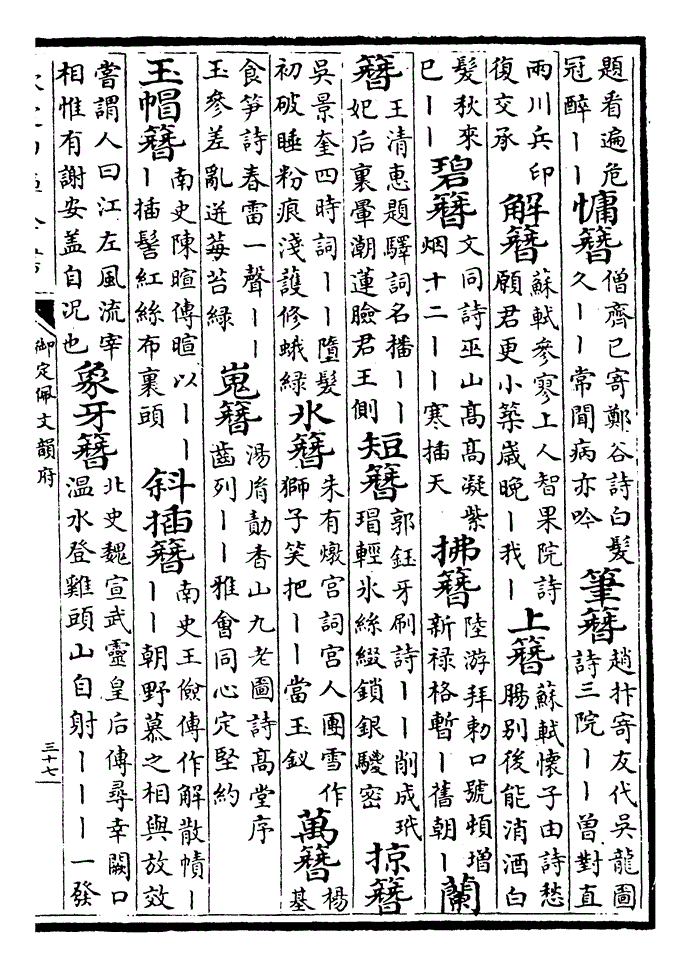 題看遍危冠醉丨丨慵簪僧齊已寄鄭谷詩白髮久丨丨常聞病亦吟筆簪趙抃寄友代吳龍圖詩三院丨丨曾對直
兩川兵印復交承解簪蘇軾參寥上人智果院詩願君更小築歲晚丨我丨上簪蘇軾懷子由詩愁腸别後能消酒白
髮秋來已丨丨碧簪文同詩巫山高高凝紫烟十二丨丨寒插天拂簪陸游拜勅口號頓增新禄格暫丨舊朝丨蘭
簪王清惠題驛詞名播丨丨妃后裏暈潮蓮臉君王側短簪郭鈺牙刷詩丨丨削成玳瑁輕氷絲綴鎖銀騣密掠簪
吳景奎四時詞丨丨墮髮初破睡粉痕淺護修蛾綠氷簪朱有燉宮詞宮人團雪作獅子笑把丨丨當玉釵萬簪楊基
食笋詩春雷一聲丨丨玉參差亂迸莓苔綠嵬簪湯胤勣香山九老圖詩高堂序齒列丨丨雅會同心定堅約
玉帽簪南史陳暄傳暄以丨丨丨插髻紅絲布裹頭斜插簪南史王儉傳作解散幘丨丨丨朝野慕之相與放效
嘗謂人曰江左風流宰相惟有謝安蓋自况也象牙簪北史魏宣武靈皇后傳尋幸闕口温水登雞頭山自射丨丨丨一發
御定佩文韻府
三十七